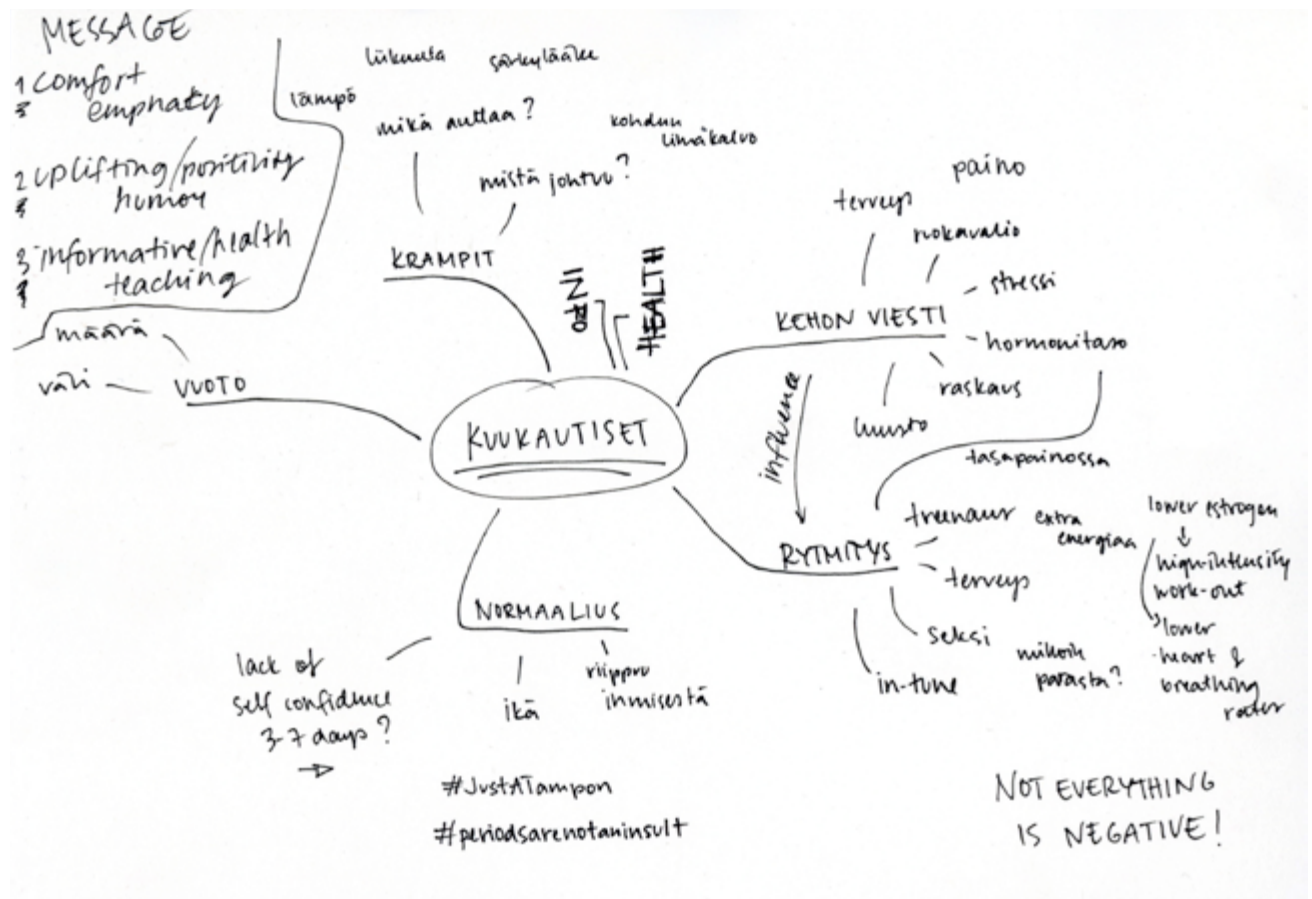 MESSAGE
1 comfort
emphaty
2 uplifting/positivity
humor
3 informative/health
teaching
liikunta
särkylääke
lämpö
mikä auttaa?
kohdun
limäkalvo
mistä johtuu?
KRAMPIT
INFO
HEALTH
terveys
paino
ruokavalio
stressi
KEHON VIESTI
hormonitaso
raskaus
luusto
influence
tasapainossa
määrä
väri
VUOTO
KUUKAUTISET
RYTMITYS
treenaus
extra
energiaa
terveys
seksi
milloin
parasta?
in-tune
lower estrogen
high-intensity
work-out
lower
heart &
breathing
rates
NORMAALIUS
lack of
self confidence
3-7 days?
ikä
riippuu
ihmisestä
#JustATampon
#periodsarenotaninsult
NOT EVERYTHING
IS NEGATIVE!